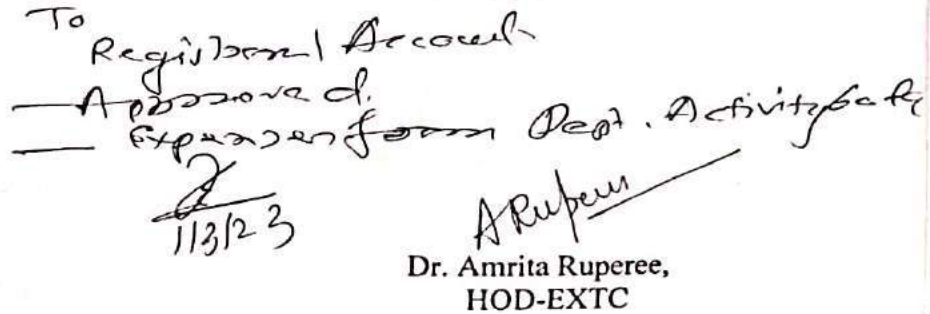 To
Registrar / Account
— Approved.
— Expenses from Dept. Activity
1/3/23
ARuperee
Dr. Amrita Ruperee,
HOD-EXTC